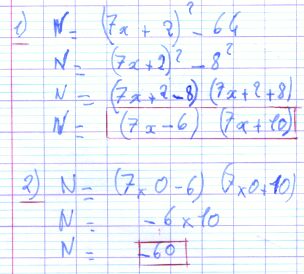 1) N = (7x + 2)² - 64
N = (7x+2)² - 8²
N = (7x+2-8) (7x+2+8)
N = (7x-6) (7x+10)
2) N = (7x0-6) (7x0+10)
N = -6x10
N = -60